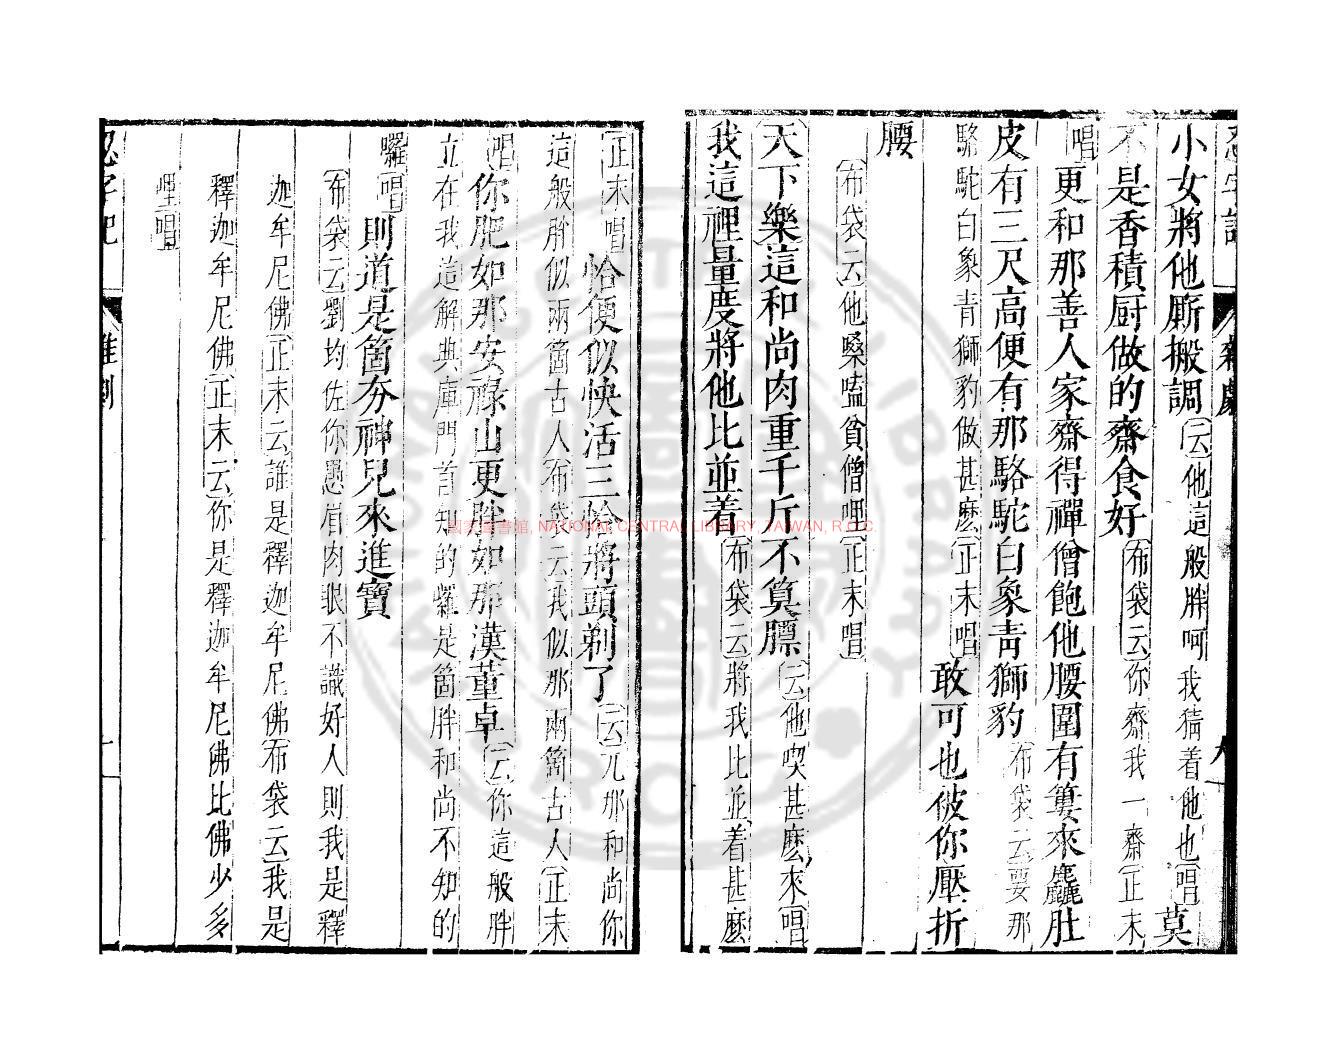 忍字記 雜劇 九
小女將他厮搬調云他這般胖呵我猜着他也唱莫
不是香積厨做的齋食好布袋云你齋我一齋正末
唱更和那善人家齋得禪僧飽他腰圍有簍來麤肚
皮有三尺高便有那駱駝白象青獅豹布袋云要那
駱駝白象青獅豹做甚麽正末唱敢可也被你壓折
腰
布袋云他嗓嗑貧僧哩正末唱
天下樂這和尚肉重千斤不算膘云他喫甚麽來唱
我這裡量度將他比並着布袋云將我比並着甚麽
正末唱恰便似快活三恰將頭剃了云兀那和尚你
這般胖似兩箇古人布袋云我似那兩箇古人正末
唱你肥如那安祿山更胖如那漢董卓云你這般胖
立在我這解典庫門首知的囉是箇胖和尚不知的
囉唱則道是箇夯神兒來進寶
布袋云劉均佐你愚眉肉眼不識好人則我是釋
迦牟尼佛正末云誰是釋迦牟尼佛布袋云我是
釋迦牟尼佛正末云你是釋迦牟尼佛比佛少多
哩唱
忍字記 雜劇
國家圖書館, NATIONAL CENTRAL LIBRARY, TAIWAN, R.O.C.